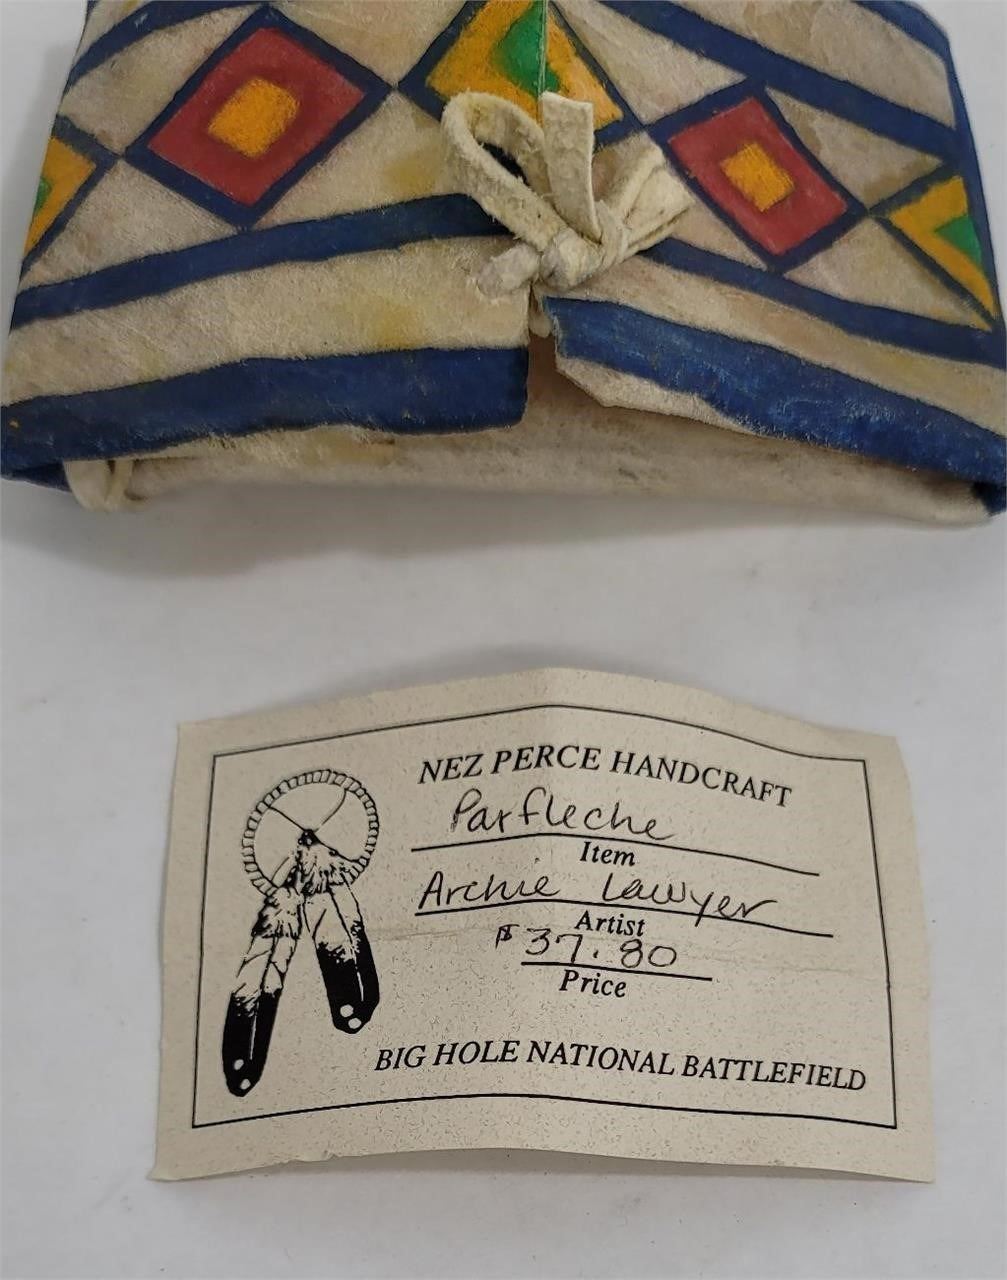 NEZ PERCE HANDCRAFT
Parfleche
Item
Archie Lawyer
Artist
$37.80
Price
BIG HOLE NATIONAL BATTLEFIELD